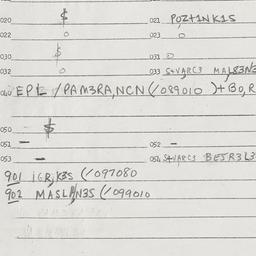 020 $ 021 POZ+1NK1S
022 0 023 0
030 $ 031 0
032 0 033 S+VARC3 MAL83N3
040 EPL / PAM3RA,NCN (/089010 )+ BO,R
050 $
051 - 052 -
053 - 054 S+VARC3 BEJR3L3
901 iGR,K3S (/097080
902 MASLAN3S (/099010